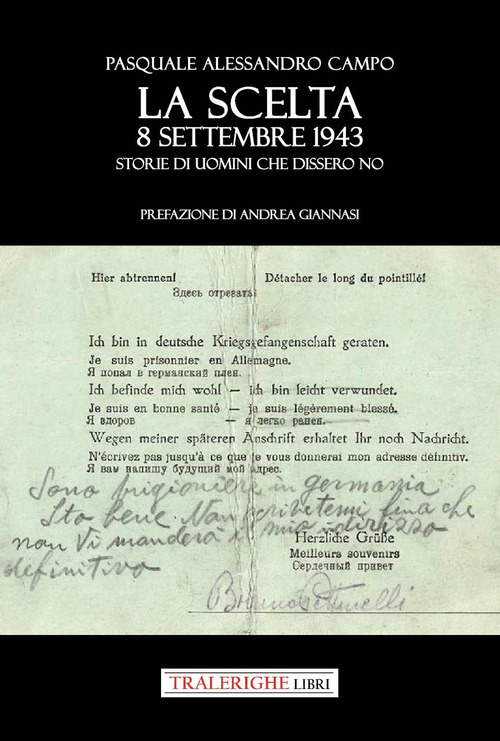 PASQUALE ALESSANDRO CAMPO
LA SCELTA
8 SETTEMBRE 1943
STORIE DI UOMINI CHE DISSERO NO
PREFAZIONE DI ANDREA GIANNASI
Hier abtrennen! Détacher le long du pointillé!
Здесь отрезать!
Ich bin in deutsche Kriegsgefangenschaft geraten.
Je suis prisonnier en Allemagne.
Я попал в германский плен.
Ich befinde mich wohl — ich bin leicht verwundet.
Je suis en bonne santé — je suis légérement blessé.
Я здоров — я легко ранен.
Wegen meiner späteren Anschrift erhaltet Ihr noch Nachricht.
N'écrivez pas jusqu'à ce que je vous donnerai mon adresse définitiv.
Я вам напишу будущий мой адрес.
Sono prigioniero in germania
Sto bene. Non scrivetemi fino che
non Vi manderò il mio indirizzo
definitivo
Herzliche Grüße
Meilleurs souvenirs
Сердечный привет
TRALERIGHE LIBRI